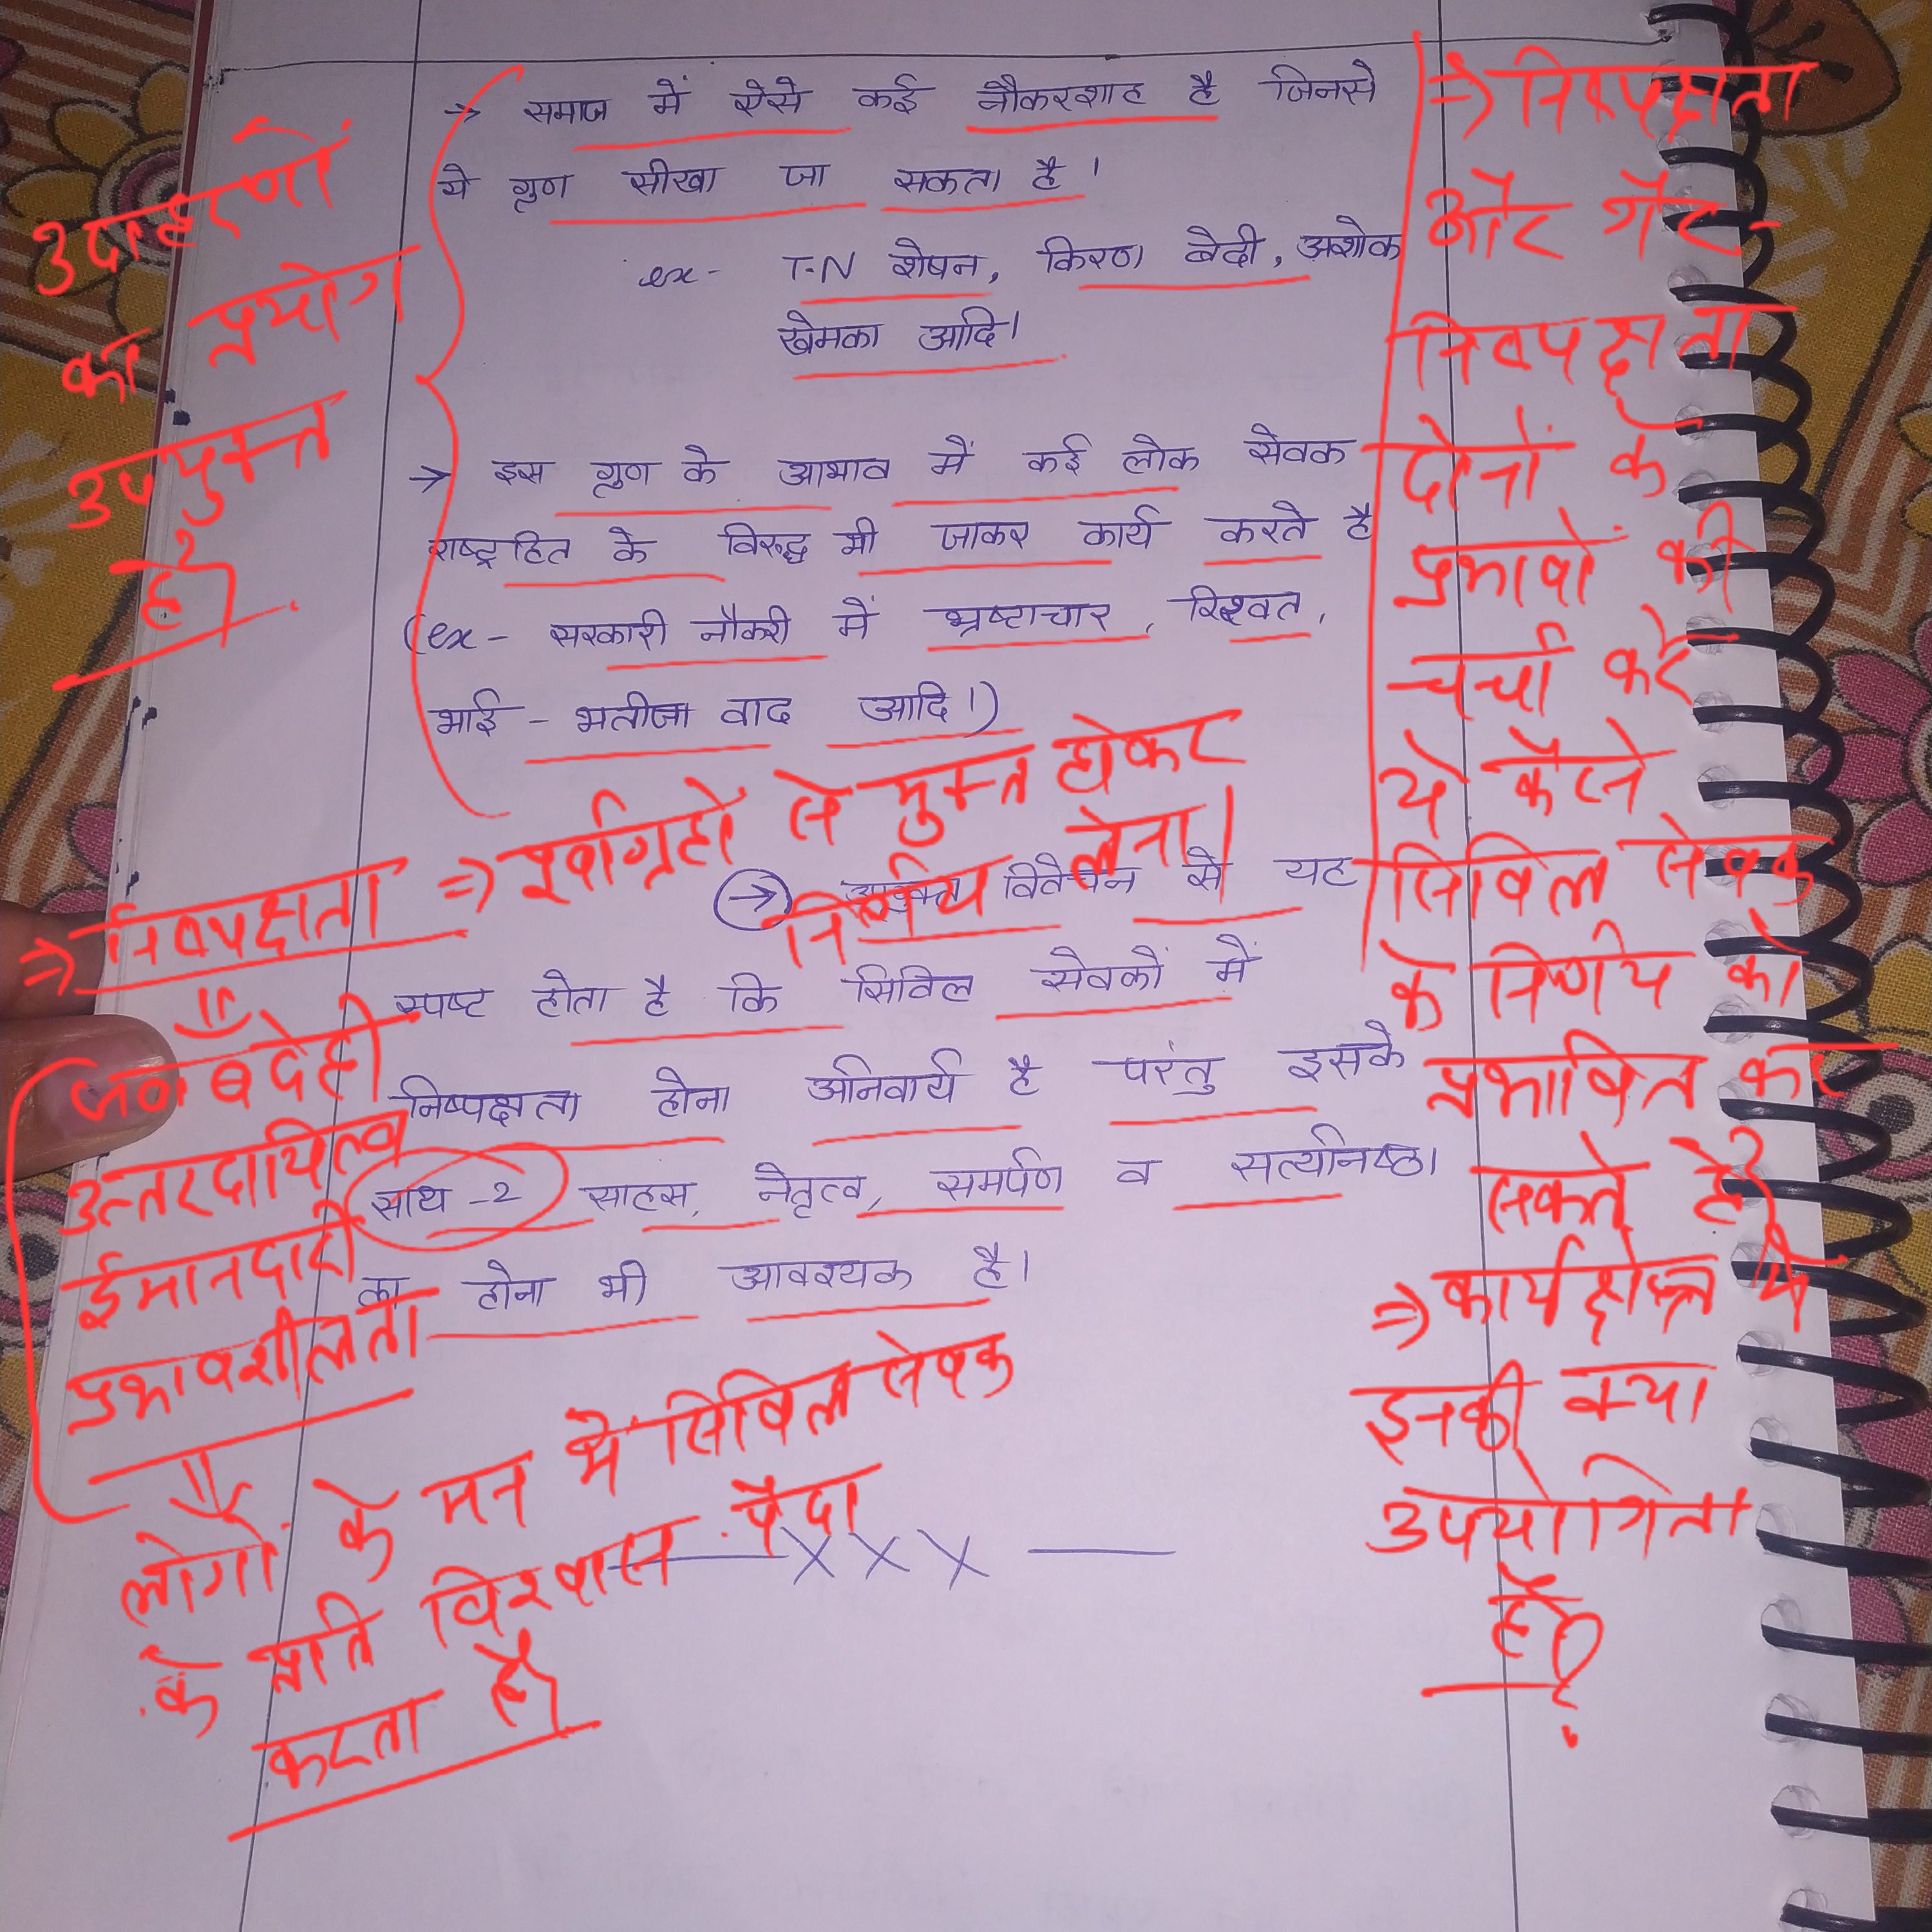 → समाज में ऐसे कई नौकरशाह है जिनसे
ये गुण सीखा जा सकता है।
ex- T.N शेषन, किरण बेदी, अशोक
खेमका आदि।
→ इस गुण के आभाव में कई लोक सेवक
राष्ट्रहित के विरुद्ध भी जाकर कार्य करते है
(ex- सरकारी नौकरी में भ्रष्टाचार, रिश्वत,
भाई - भतीजा वाद आदि।)
→ उपर्युक्त विवेचन से यह
स्पष्ट होता है कि सिविल सेवकों में
निष्पक्षता होना अनिवार्य है परंतु इसके
साथ-2 साहस, नेतृत्व, समर्पण व सत्यनिष्ठा
का होना भी आवश्यक है।
xxx
उदाहरणों
का प्रयोग
उपयुक्त
है।
⇒ निष्पक्षता ⇒ पूर्वाग्रहों से मुक्त होकर
निर्णय लेना।
जवाबदेही
उत्तरदायित्व
ईमानदारी
प्रभावशीलता
लोगों के मन में सिविल सेवक
के प्रति विश्वास पैदा
करता है।
⇒ निष्पक्षता
और गैर-
निष्पक्षता
दोनों के
प्रभावों की
चर्चा करें
ये कैसे
सिविल सेवक
के निर्णय को
प्रभावित कर
सकते है।
⇒ कार्यक्षेत्र में
इनकी क्या
उपयोगिता
है?